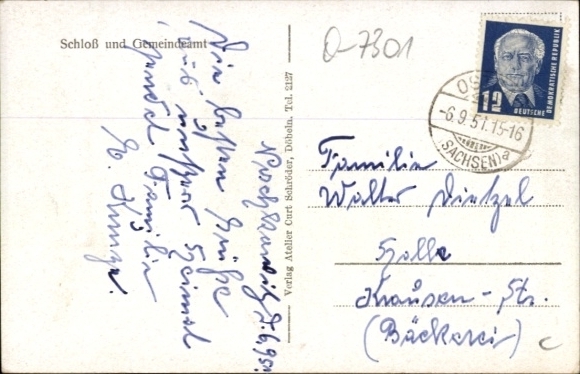 Schloß und Gemeindeamt
Die besten Grüße
aus unserer Heimat
sendet Familie
E. Künze.
d. 6.9.51
Verlag Atelier Curt Schröder, Döbeln. Tel. 2127
Q-7301
12
DEUTSCHE
DEMOKRATISCHE REPUBLIK
-6.9.51.15-16
(SACHSEN) a
Familie
Walter Dietzel
Halle
Krausen-Str.
(Bäckerei)